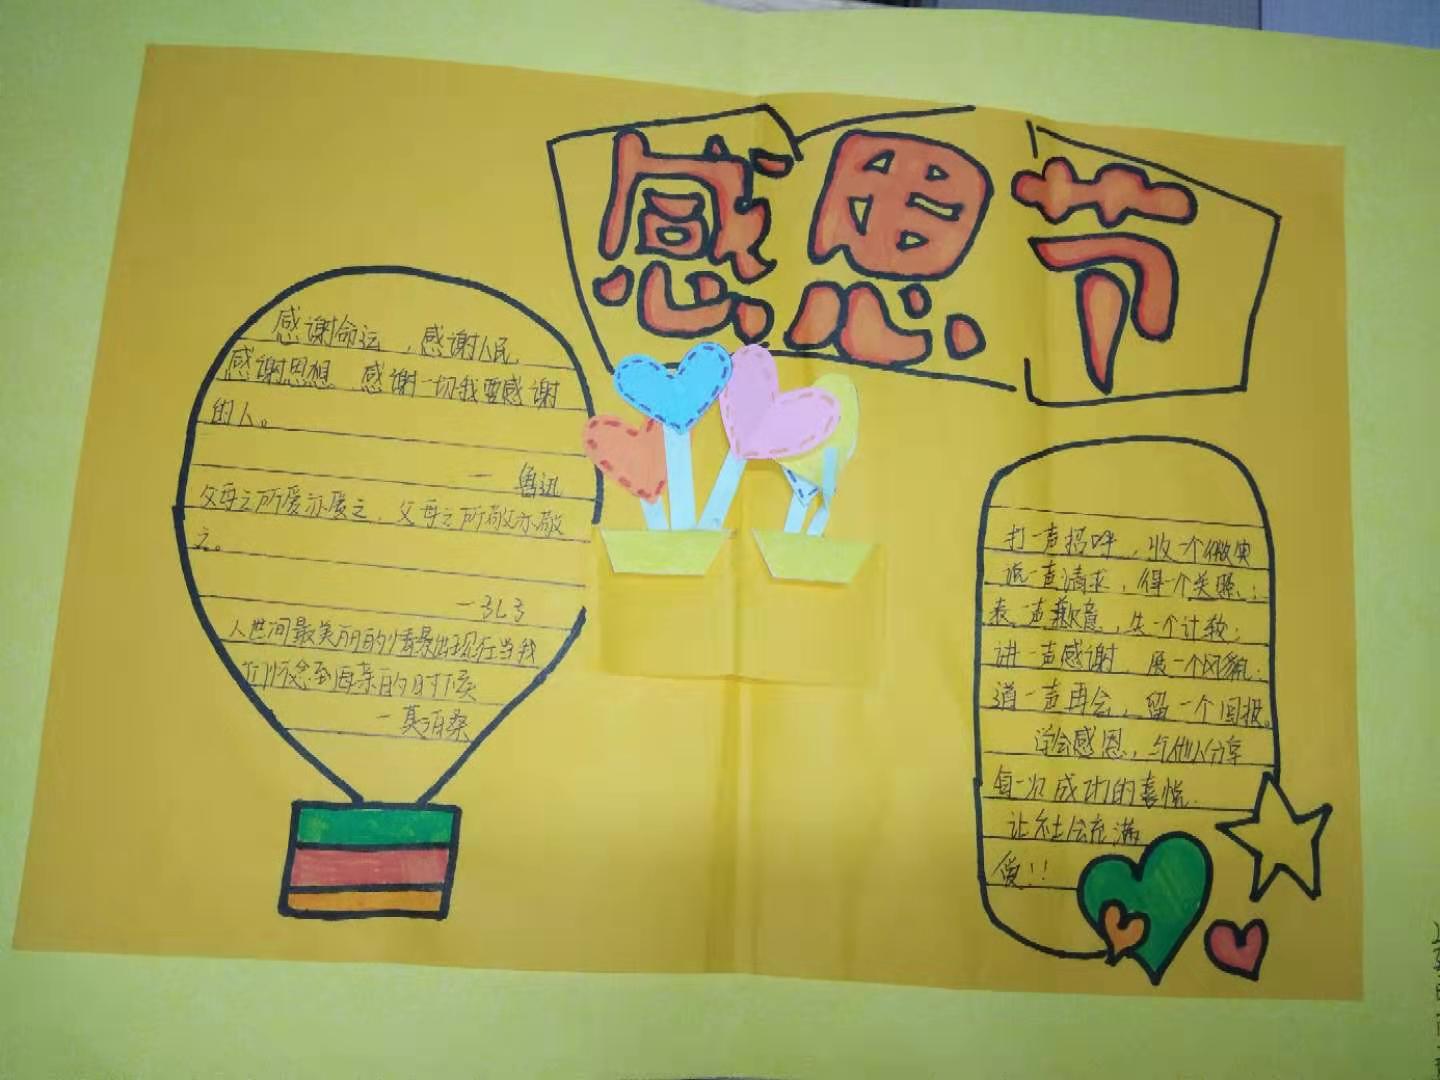 感恩节
感谢命运，感谢人民
感谢思想 感谢一切我要感谢
的人。
—鲁迅
父母之所爱亦爱之，父母之所敬亦敬
之。
—孔子
人世间最美丽的情景出现在当我
们怀念到母亲的时候
—莫泊桑
打一声招呼，收一个微笑
说一声请求，得一个关照；
表一声歉意，失一个计较；
讲一声感谢 展一个风貌；
道一声再会，留一个回报。
学会感恩，与他人分享
每一次成功的喜悦
让社会充满
爱!!